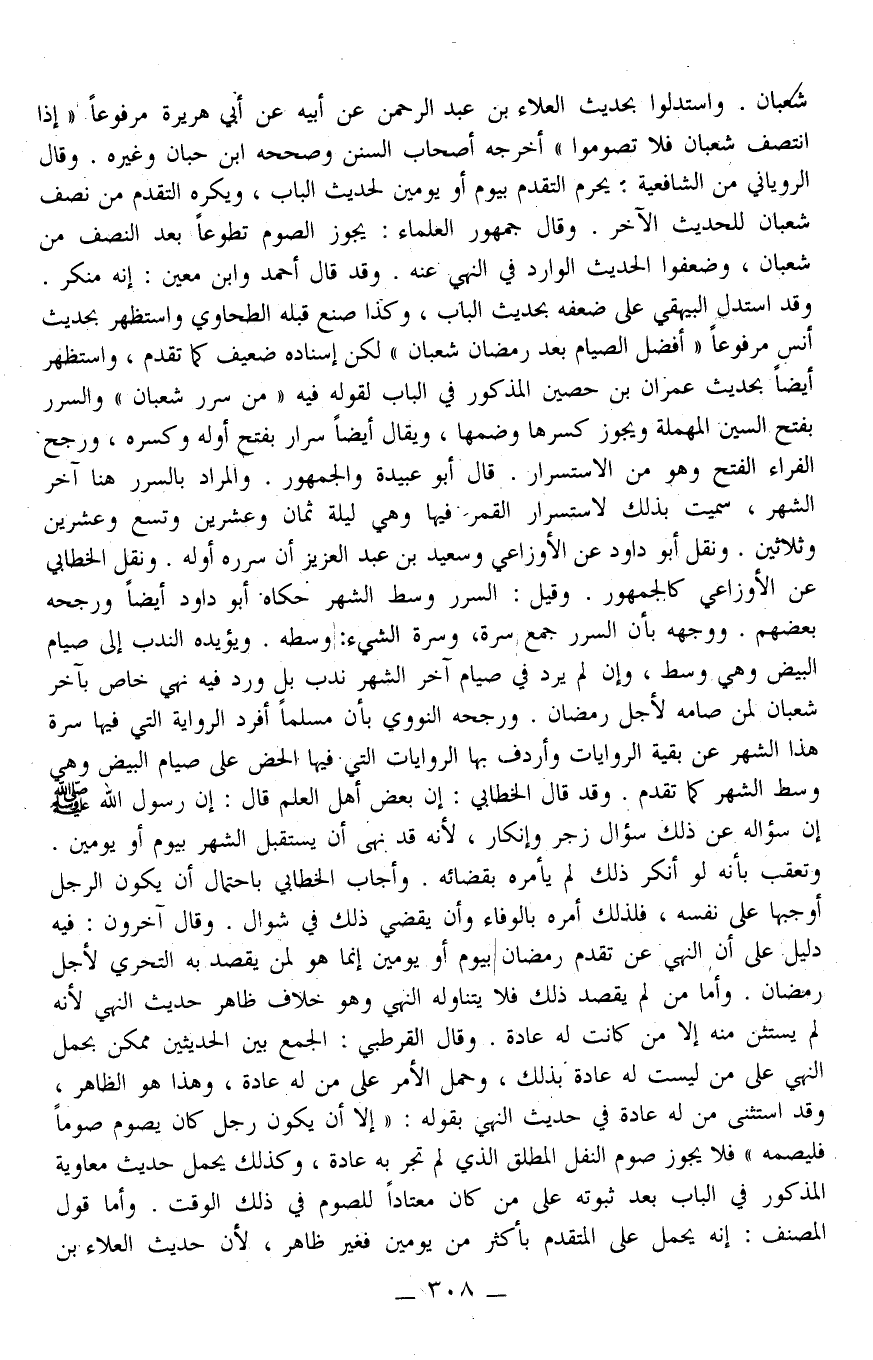 شعبان . واستدلوا بحديث العلاء بن عبد الرحمن عن أبيه عن أبي هريرة مرفوعاً « إذا
انتصف شعبان فلا تصوموا » أخرجه أصحاب السنن وصححه ابن حبان وغيره . وقال
الروياني من الشافعية : يحرم التقدم بيوم أو يومين لحديث الباب ، ويكره التقدم من نصف
شعبان للحديث الآخر . وقال جمهور العلماء : يجوز الصوم تطوعاً بعد النصف من
شعبان ، وضعفوا الحديث الوارد في النهي عنه . وقد قال أحمد وابن معين : إنه منكر .
وقد استدل البيهقي على ضعفه بحديث الباب ، وكذا صنع قبله الطحاوي واستظهر بحديث
أنس مرفوعاً « أفضل الصيام بعد رمضان شعبان » لكن إسناده ضعيف كما تقدم ، واستظهر
أيضاً بحديث عمران بن حصين المذكور في الباب لقوله فيه « من سرر شعبان » والسرر
بفتح السين المهملة ويجوز كسرها وضمها ، ويقال أيضاً سرار بفتح أوله وكسره ، ورجح
الفراء الفتح وهو من الاستسرار . قال أبو عبيدة والجمهور . والمراد بالسرر هنا آخر
الشهر ، سميت بذلك لاستسرار القمر فيها وهي ليلة ثمان وعشرين وتسع وعشرين
وثلاثين . ونقل أبو داود عن الأوزاعي وسعيد بن عبد العزيز أن سرره أوله . ونقل الخطابي
عن الأوزاعي كالجمهور . وقيل : السرر وسط الشهر حكاه أبو داود أيضاً ورجحه
بعضهم . ووجهه بأن السرر جمع سرة، وسرة الشيء: وسطه . ويؤيده الندب إلى صيام
البيض وهي وسط ، وإن لم يرد في صيام آخر الشهر ندب بل ورد فيه نهي خاص بآخر
شعبان لمن صامه لأجل رمضان . ورجحه النووي بأن مسلماً أفرد الرواية التي فيها سرة
هذا الشهر عن بقية الروايات وأردف بها الروايات التي فيها الحض على صيام البيض وهي
وسط الشهر كما تقدم . وقد قال الخطابي : إن بعض أهل العلم قال : إن رسول الله ﷺ
إن سؤاله عن ذلك سؤال زجر وإنكار ، لأنه قد نهى أن يستقبل الشهر بيوم أو يومين .
وتعقب بأنه لو أنكر ذلك لم يأمره بقضائه . وأجاب الخطابي باحتمال أن يكون الرجل
أوجبها على نفسه ، فلذلك أمره بالوفاء وأن يقضي ذلك في شوال . وقال آخرون : فيه
دليل على أن النهي عن تقدم رمضان بيوم أو يومين إنما هو لمن يقصد به التحري لأجل
رمضان . وأما من لم يقصد ذلك فلا يتناوله النهي وهو خلاف ظاهر حديث النهي لأنه
لم يستثن منه إلا من كانت له عادة . وقال القرطبي : الجمع بين الحديثين ممكن بحمل
النهي على من ليست له عادة بذلك ، وحمل الأمر على من له عادة ، وهذا هو الظاهر ،
وقد استثنى من له عادة في حديث النهي بقوله : « إلا أن يكون رجل كان يصوم صوماً
فليصمه » فلا يجوز صوم النفل المطلق الذي لم تجر به عادة ، وكذلك يحمل حديث معاوية
المذكور في الباب بعد ثبوته على من كان معتاداً للصوم في ذلك الوقت . وأما قول
المصنف : إنه يحمل على المتقدم بأكثر من يومين فغير ظاهر ، لأن حديث العلاء بن
— ٣٠٨ —